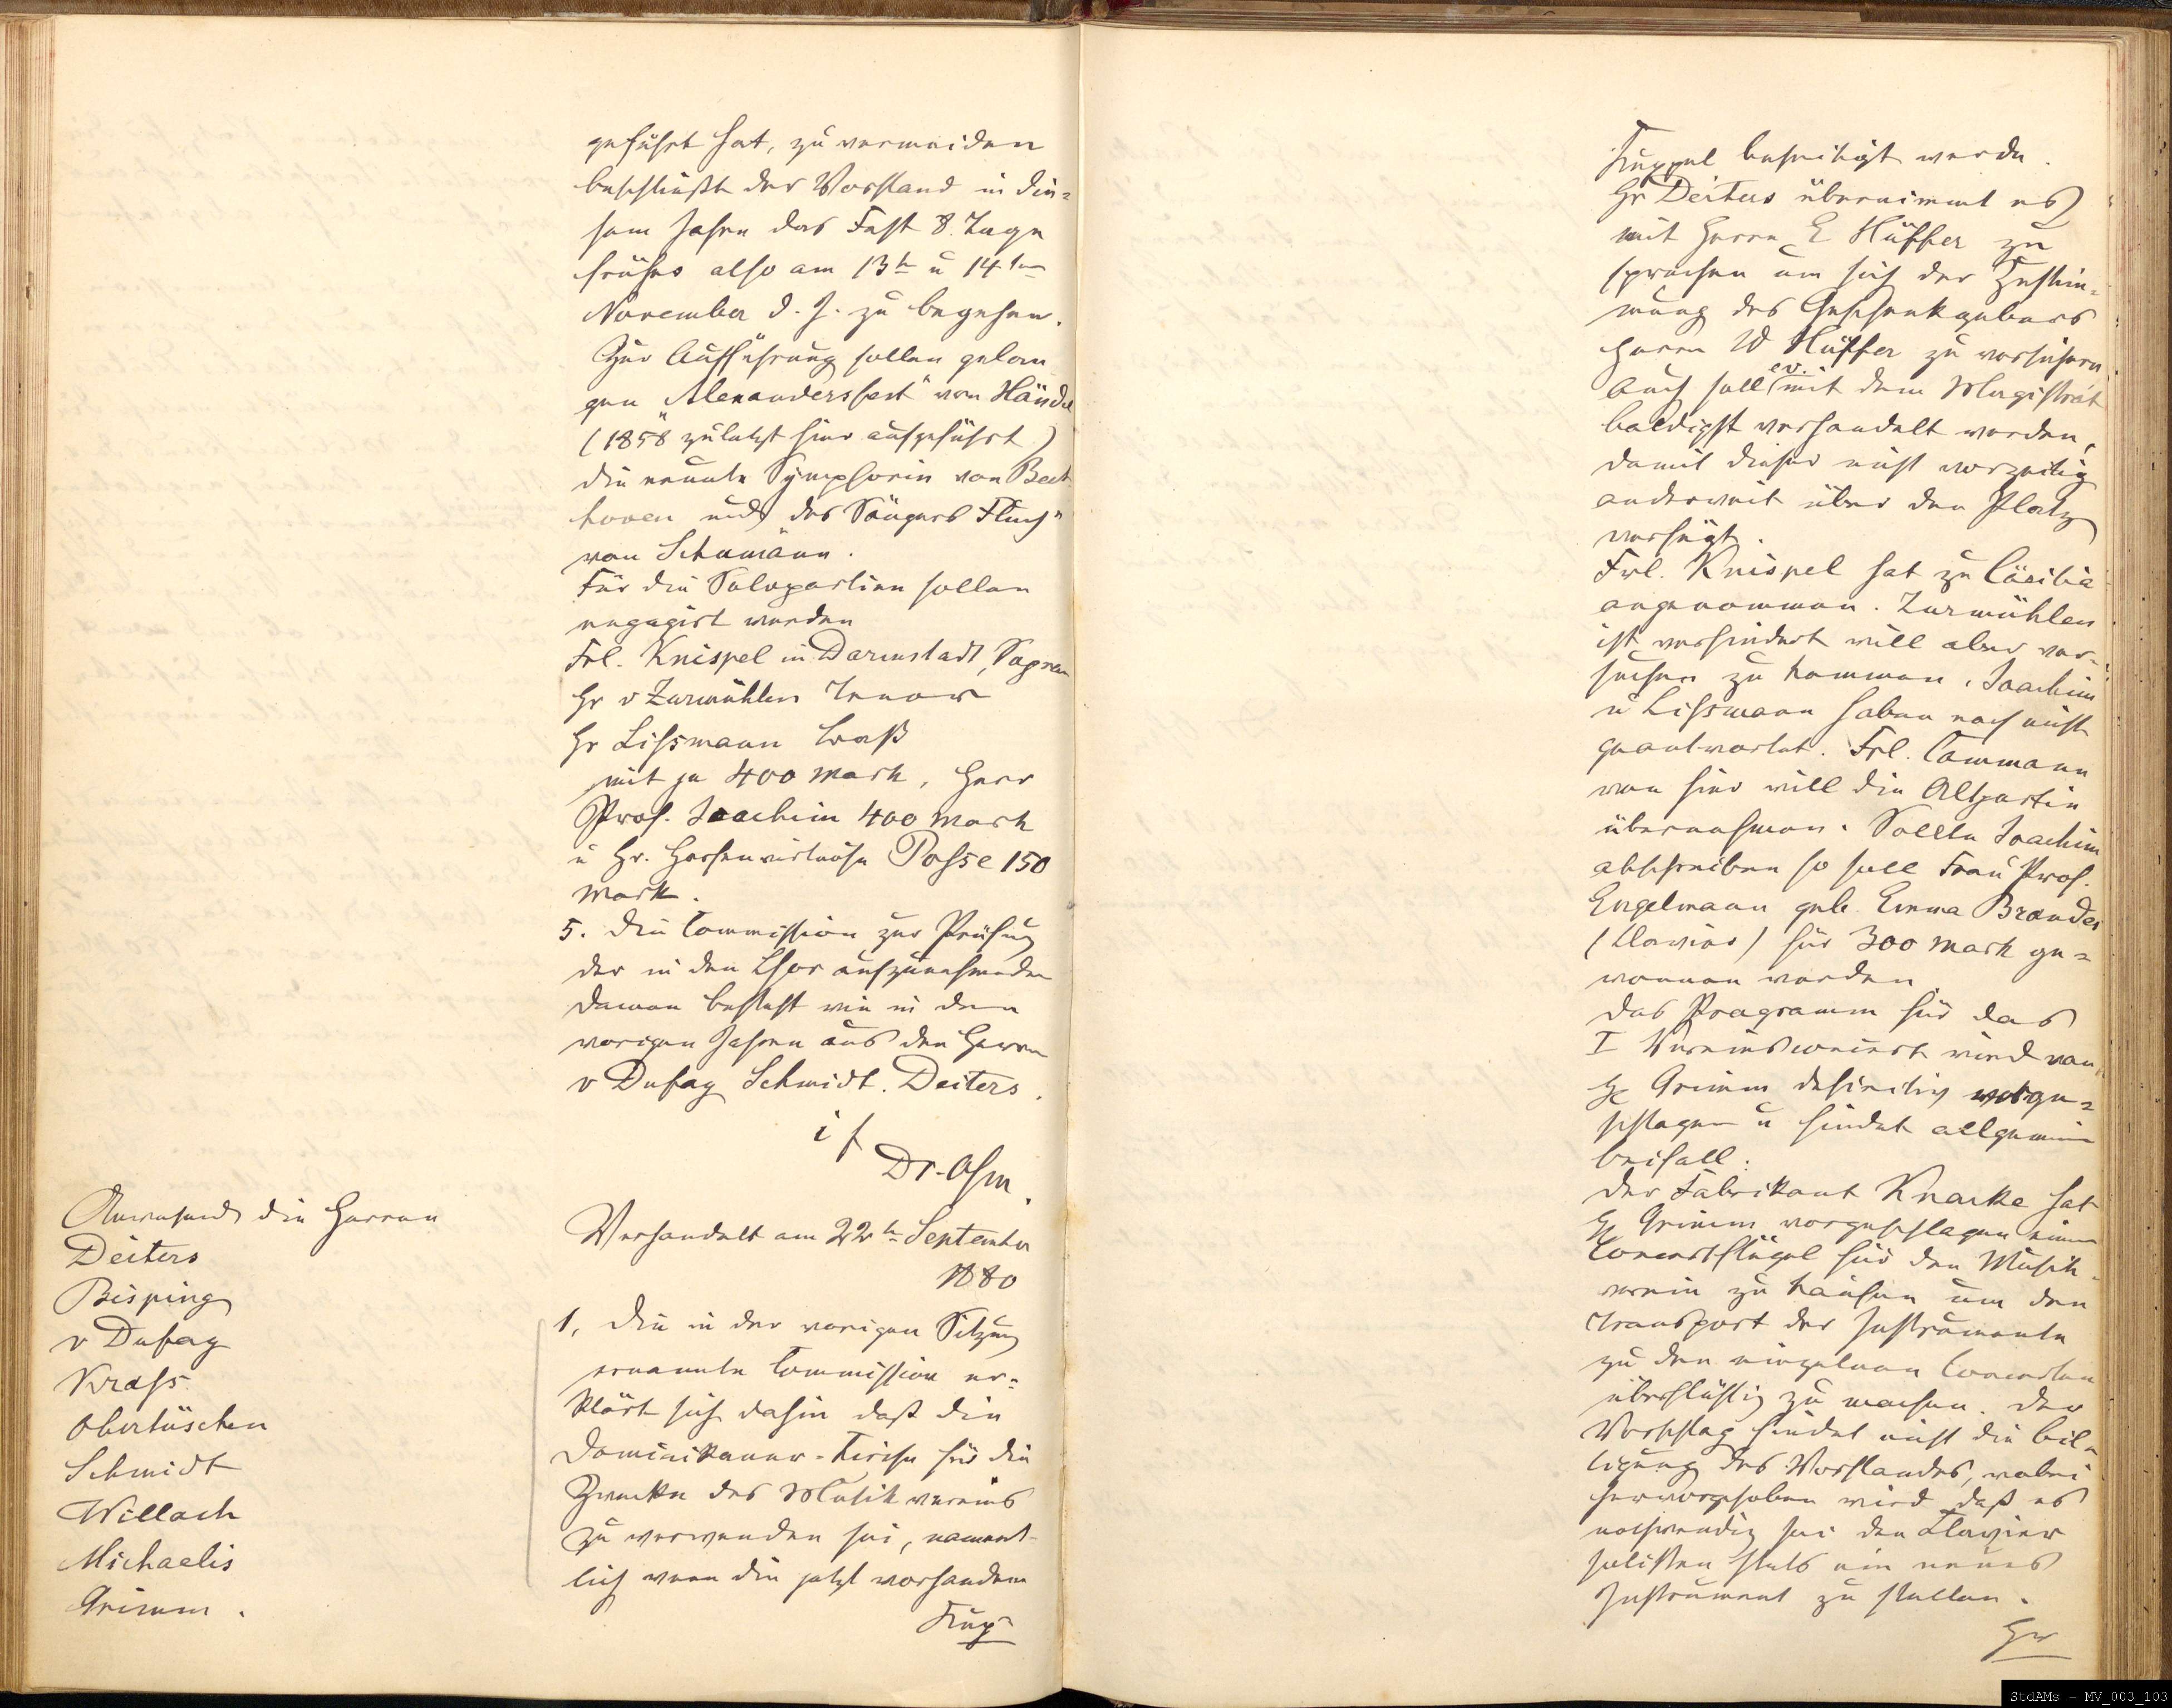 geführt hat, zu vermeiden
beschließt der Vorstand in die=
sem Jahre das Fest 8 Tage
früher also am 13t u 14ten
November d. J. zu begehen.
Zur Aufführung sollen gelan
gen „Alexandersfest" von Händel
(1858 zuletzt hier aufgeführt)
die neunte Symphonie von Beet
hoven und „des Sängers Fluch"
von Schumann.
Für die Solopartien sollen
engagirt werden
Frl. Knispel in Darmstadt, Sopran
Hr v Zurmühlen Tenor
Hr Lissmann Baß
mit je 400 Mark, Herr
Prof. Joachim 400 Mark
u Hr. Harfenvirtuose Posse 150
Mark.
5. Die Commission zur Prüfung
der in den Chor aufzunehmenden
Damen besteht wie in den
vorigen Jahren aus den Herren
v Dufay Schmidt. Deiters.
Anwesend die Herren
Deiters
Bisping
v Dufay
Krass
Obertüschen
Schmidt
Willach
Michaelis
Grimm.
Verhandelt am 22t September
1880
1, Die in der vorigen Sitzung
ernannte Commission er=
klärt sich dahin daß die
Dominikaner-Kirche für die
Zwecke des Musikvereins
zu verwenden sei, nament-
lich wenn die jetzt vorhandene
Kup=
Kuppel beseitigt werde.
Hr Deiters übernimmt es
mit Herrn E Hüffer zu
sprechen um sich der Zustim=
mung des Geschenkgebers
Herrn W Hüffer zu versichern
Auch soll ev. mit dem Magistrat
baldigst verhandelt werden,
damit dieser nicht vorzeitig
anderweit über den Platz
verfügt.
Frl. Knispel hat zu Cäcilia
angenommen. Zurmühlen
ist verhindert will aber ver-
suchen zu kommen. Joachim
u Lissmann haben noch nicht
geantwortet. Frl. Tammann
von hier will die Altpartie
übernehmen. Sollte Joachim
abschreiben so soll Frau Prof.
Engelmann geb. Emma Brandes
(Clavier) für 300 Mark ge=
wonnen werden.
Das Programm für das
I Vereinsconcert wird von
H Grimm definitiv vorge=
schlagen u findet allgemein
Beifall.
Der Fabrikant Knacke hat
H Grimm vorgeschlagen einen
Concertflügel für den Musik-
verein zu kaufen um den
Transport der Instrumente
zu den einzelnen Concerten
überflüssig zu machen. Der
Vorschlag findet nicht die Bil=
ligung des Vorstandes, wobei
hervorgehoben wird daß es
nothwendig sei den Clavier
solisten stets ein neues
Instrument zu stellen.
Hr
StdAMs - MV_003_103